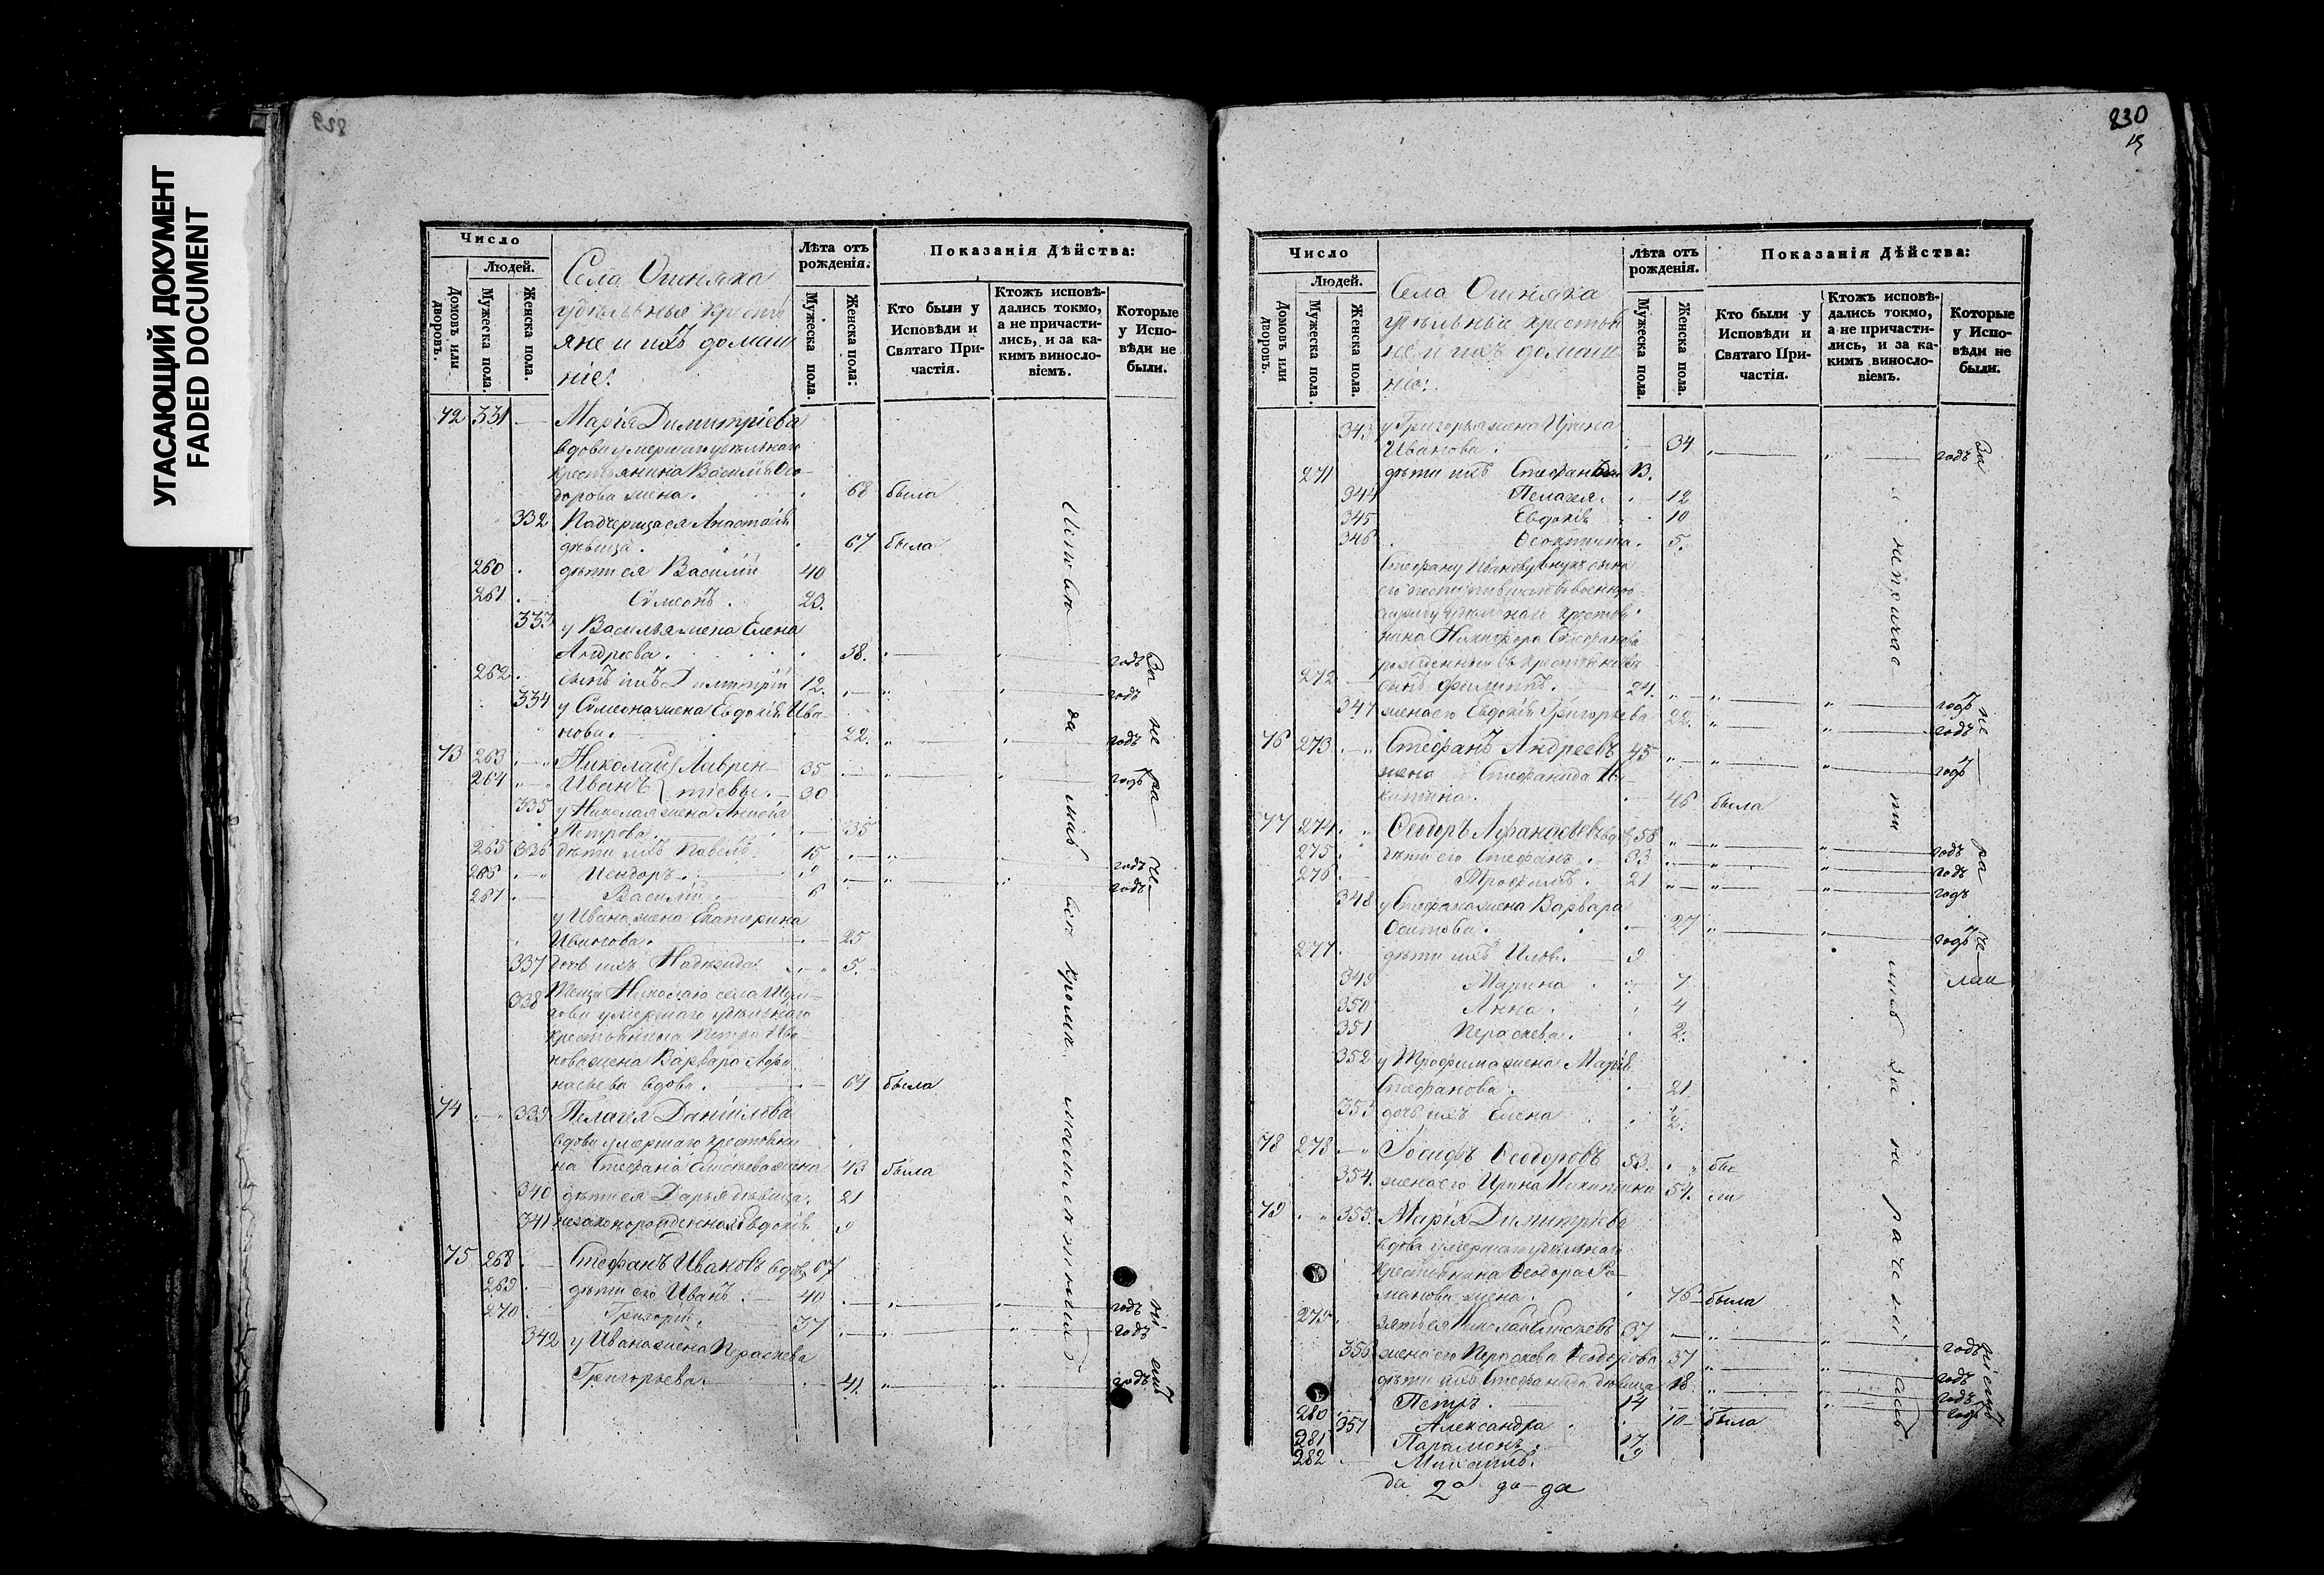 УГАСАЮЩИЙ ДОКУМЕНТ
FADED DOCUMENT
829
Число
Людей.
Домовъ или дворовъ.
Мужеска пола.
Женска пола.
Села
удѣльныя кресть
яне и ихъ домаш
ніе:
Лѣта отъ рожденія.
Мужеска пола.
Женска пола:
Показанія Дѣйства:
Кто были у Исповѣди и Святаго Причастія.
Ктожъ исповѣдались токмо, а не причастились, и за какимъ винословіемъ.
Которые у Исповѣди не были.
72 331 — Марія Димитріева
вдова умершаго удѣльнаго
крестьянина Василія Ѳео-
дорова жена. 68 была
332 Падчерица ея Анастасія
дѣвица. 67 была
260 дѣти ея Василій 40
261 Сѵмеонъ. 23.
333 у Василья жена Елена
Андреева. 38. годъ
262. сынъ ихъ Димитрій 12. годъ
334 у Сѵмеона жена Евдокія Ива-
нова. 22. годъ
73 263 Николай Лаврен- 35 годъ
264 Иванъ тіевы. 30
335 у Николая жена Анисія
Петрова. 35
265 336 дѣти ихъ Павелъ 15 годъ
266 Исидоръ. 9 годъ
267 Василій. 6
у Ивана жена Екатерина
Иванова. 25
337 дочь ихъ Надежда 5.
338 Теща Николаю села
вдова умершаго удѣльнаго
крестьянина Петра Ива
нова жена Варвара Аѳа
насьева вдова. 64 была
74 339 Пелагея Даніилова
вдова умершаго крестьяни
на Стефана Елисѣева жена 43 была
340 дѣти ея Дарья дѣвица. 21
341 незаконорожденная Евдокія 9
75 268 Стефанъ Ивановъ вдовъ 67
269 дѣти его Иванъ. 40 годъ
270 Григорій. 37 годъ
342 у Ивана жена Параскева
Григорьева. 41. годъ
За не ра че ні емъ
830
Число
Людей.
Домовъ или дворовъ.
Мужеска пола.
Женска пола.
Села
удѣльные крестья
не и ихъ домаш
ніе:
Лѣта отъ рожденія.
Мужеска пола.
Женска пола.
Показанія Дѣйства:
Кто были у Исповѣди и Святаго Причастія.
Ктожъ исповѣдались токмо, а не причастились, и за какимъ винословіемъ.
Которые у Исповѣди не были.
343 у Григорья жена Ирина
Иванова. 34 годъ
271 дѣти ихъ Стефанъ 13.
344 Пелагея. 12
345 Евдокія 10
346 Ѳеоктиста. 5.
Стефану Иванову внукъ сына
его поступившаго въ военную
службу удѣльнаго крестья
нина Никифора Стефанова
рожденный въ крестьянствѣ
272 сынъ Филиппъ. 24. годъ
347 жена его Евдокія Григорьева 22. годъ
76 273 Стефанъ Андреевъ 45 годъ
жена Стефанида Ни
китина. 46 была
77 274 Ѳеодоръ Аѳанасьевъ вдовъ 58 годъ
275 дѣти его Стефанъ. 33 годъ
276 Трофимъ. 21 годъ
348 у Стефана жена Варвара
Осипова. 27 годъ
277 дѣти ихъ 9
349 Марина 7
350 Анна. 4
351 Параскева. 2.
352 у Трофима жена Марія
Стефанова. 21
353 дочь ихъ Елена ½.
78 278 Іосифъ Ѳеодоровъ 53. бы-
354. жена его Ирина Никитина 54. ли
79 355. Марія Димитріева
вдова умершаго удѣльнаго
крестьянина Ѳеодора Ро-
манова жена. 76 была
275 зять ея Николай Елисѣевъ 37 годъ
356 жена его Параскева Ѳеодорова 37 годъ
дѣти ихъ Стефанида дѣвица 18 годъ
280 Петръ. 14 годъ
357 Александра. 10 была
281 Парамонъ. 17
282 Михаилъ. 9
За не ра че ніемъ